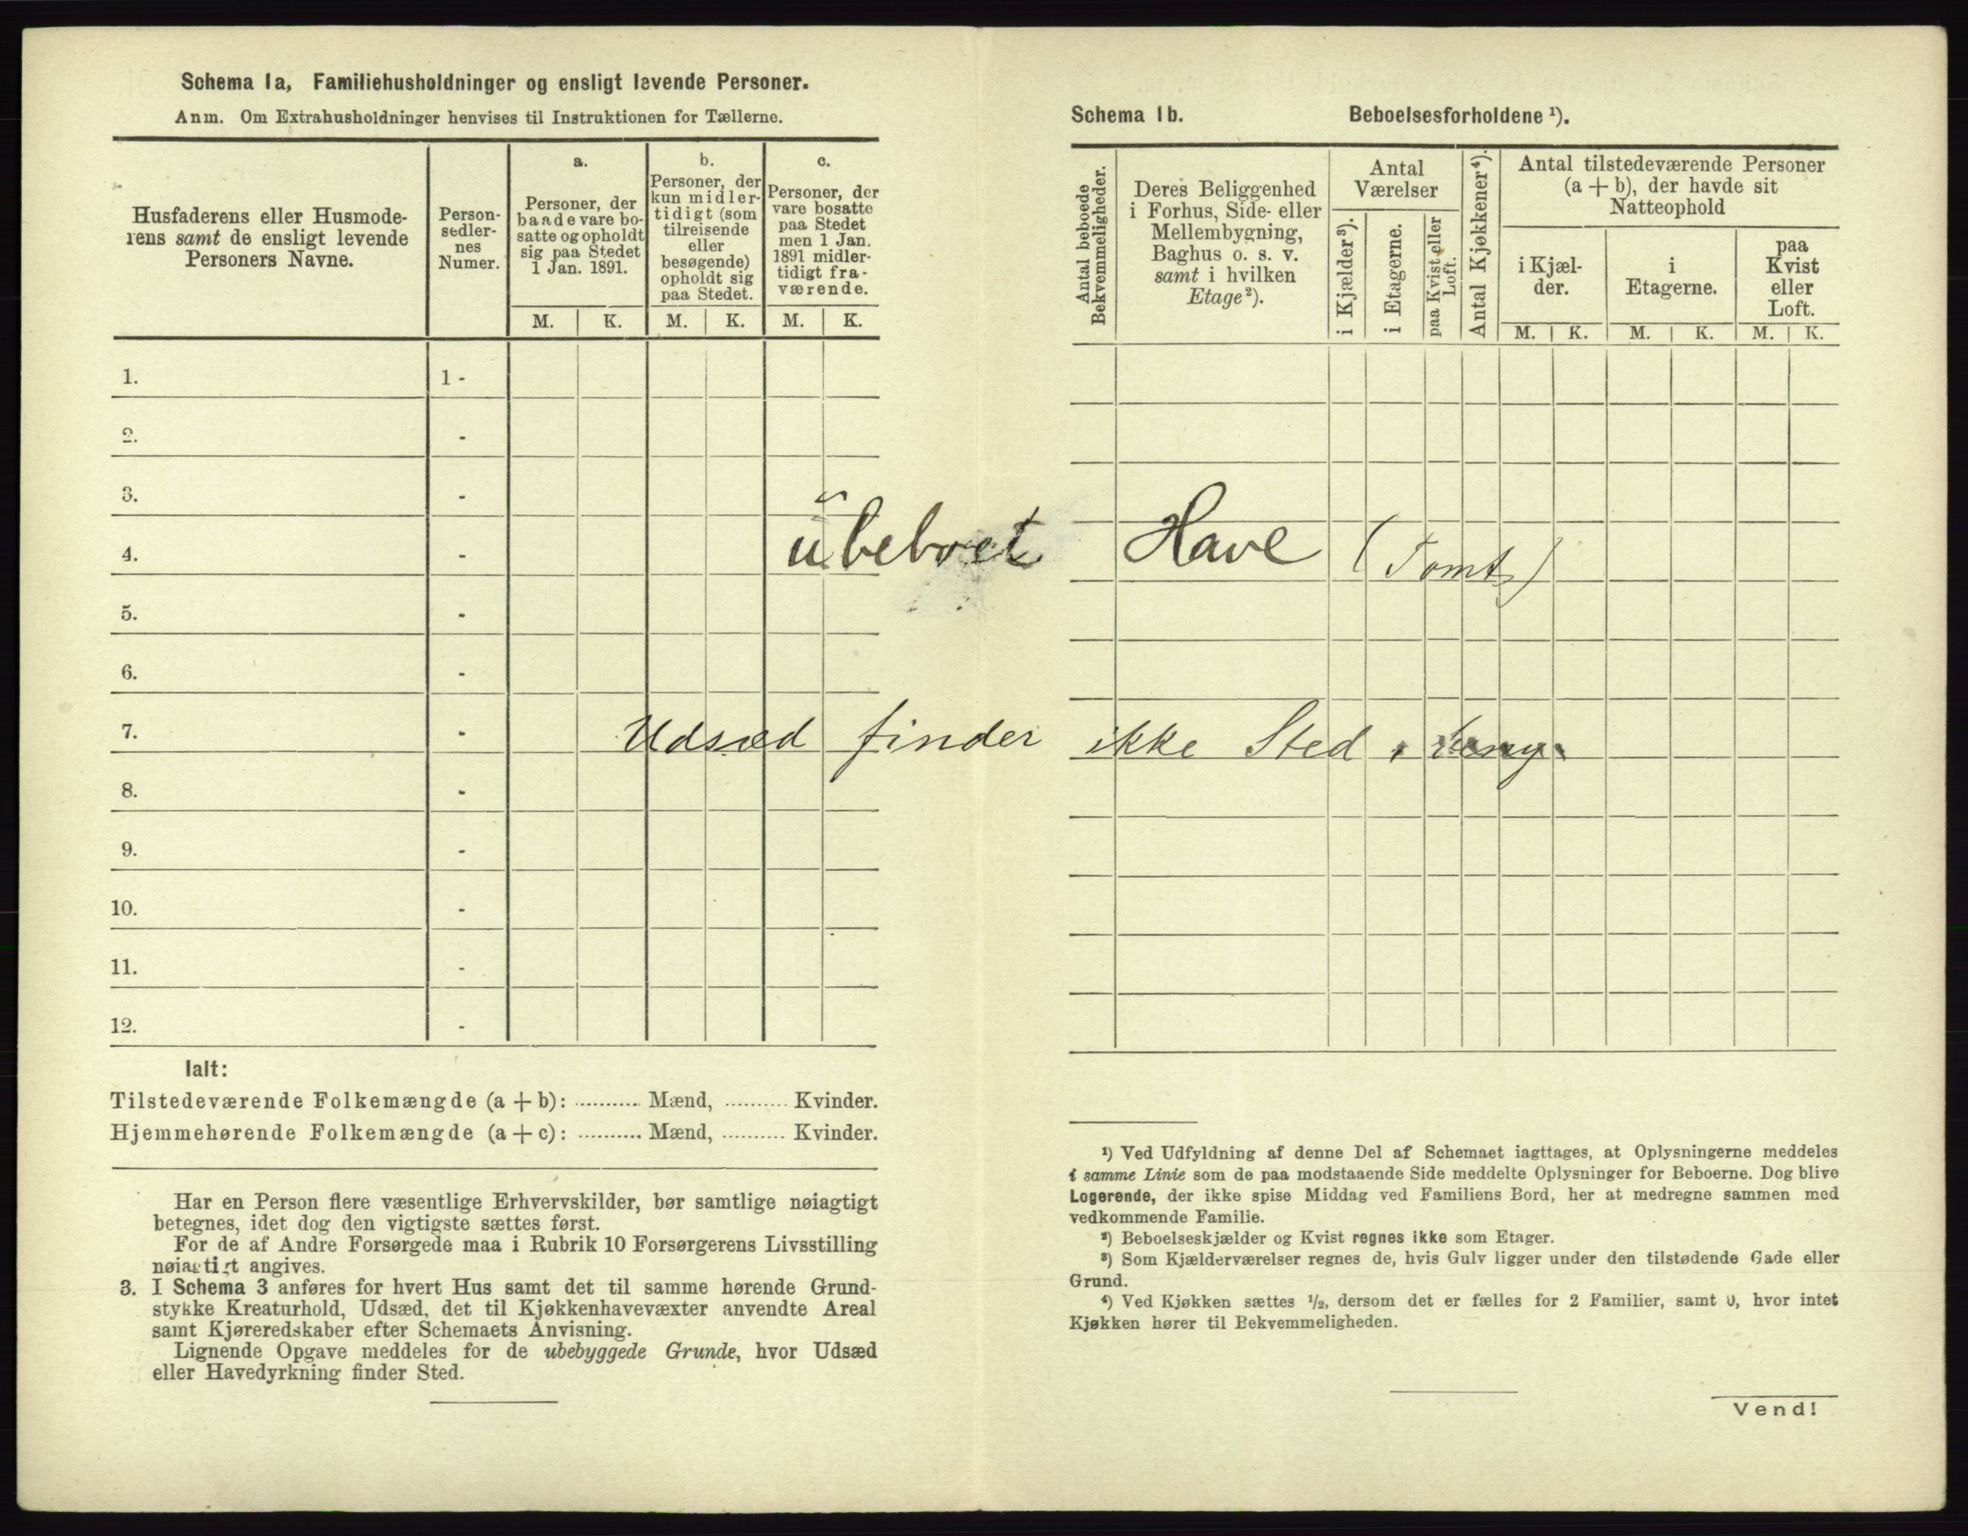 Schema 1a, Familiehusholdninger og ensligt levende Personer.
Anm. Om Extrahusholdninger henvises til Instruktionen for Tællerne.
Husfaderens eller Husmode-
rens samt de ensligt levende
Personers Navne.
Person-
sedler-
nes
Numer.
a.
Personer, der
baade vare bo-
satte og opholdt
sig paa Stedet
1 Jan. 1891.
b.
Personer, der
kun midler-
tidigt (som
tilreisende
eller
besøgende)
opholdt sig
paa Stedet.
c.
Personer, der
vare bosatte
paa Stedet
men 1 Jan.
1891 midler-
tidigt fra-
værende.
M. K. M. K. M. K.
1. 1 -
2. -
3. -
4. -
5. -
6. -
7. -
8. -
9. -
10. -
11. -
12. -
Ialt:
Tilstedeværende Folkemængde (a + b): ........... Mænd, .......... Kvinder.
Hjemmehørende Folkemængde (a + c): ........... Mænd, .......... Kvinder.
Har en Person flere væsentlige Erhvervskilder, bør samtlige nøiagtigt
betegnes, idet dog den vigtigste sættes først.
For de af Andre Forsørgede maa i Rubrik 10 Forsørgerens Livsstilling
nøiagtigt angives.
3. I Schema 3 anføres for hvert Hus samt det til samme hørende Grund-
stykke Kreaturhold, Udsæd, det til Kjøkkenhavevæxter anvendte Areal
samt Kjøreredskaber efter Schemaets Anvisning.
Lignende Opgave meddeles for de ubebyggede Grunde, hvor Udsæd
eller Havedyrkning finder Sted.
Schema 1b. Beboelsesforholdene ¹).
Antal beboede
Bekvemmeligheder.
Deres Beliggenhed
i Forhus, Side- eller
Mellembygning,
Baghus o. s. v.
samt i hvilken
Etage²).
Antal
Værelser
i Kjælder³).
i Etagerne.
paa Kvist eller
Loft.
Antal Kjøkkener⁴).
Antal tilstedeværende Personer
(a + b), der havde sit
Natteophold
i Kjæl-
der.
i
Etagerne.
paa
Kvist
eller
Loft.
M. K. M. K. M. K.
ubeboet Have (Tomt)
Udsæd finder ikke Sted
¹) Ved Udfyldning af denne Del af Schemaet iagttages, at Oplysningerne meddeles
i samme Linie som de paa modstaaende Side meddelte Oplysninger for Beboerne. Dog blive
Logerende, der ikke spise Middag ved Familiens Bord, her at medregne sammen med
vedkommende Familie.
²) Beboelseskjælder og Kvist regnes ikke som Etager.
³) Som Kjælderværelser regnes de, hvis Gulv ligger under den tilstødende Gade eller
Grund.
⁴) Ved Kjøkken sættes ½, dersom det er fælles for 2 Familier, samt 0, hvor intet
Kjøkken hører til Bekvemmeligheden.
Vend!